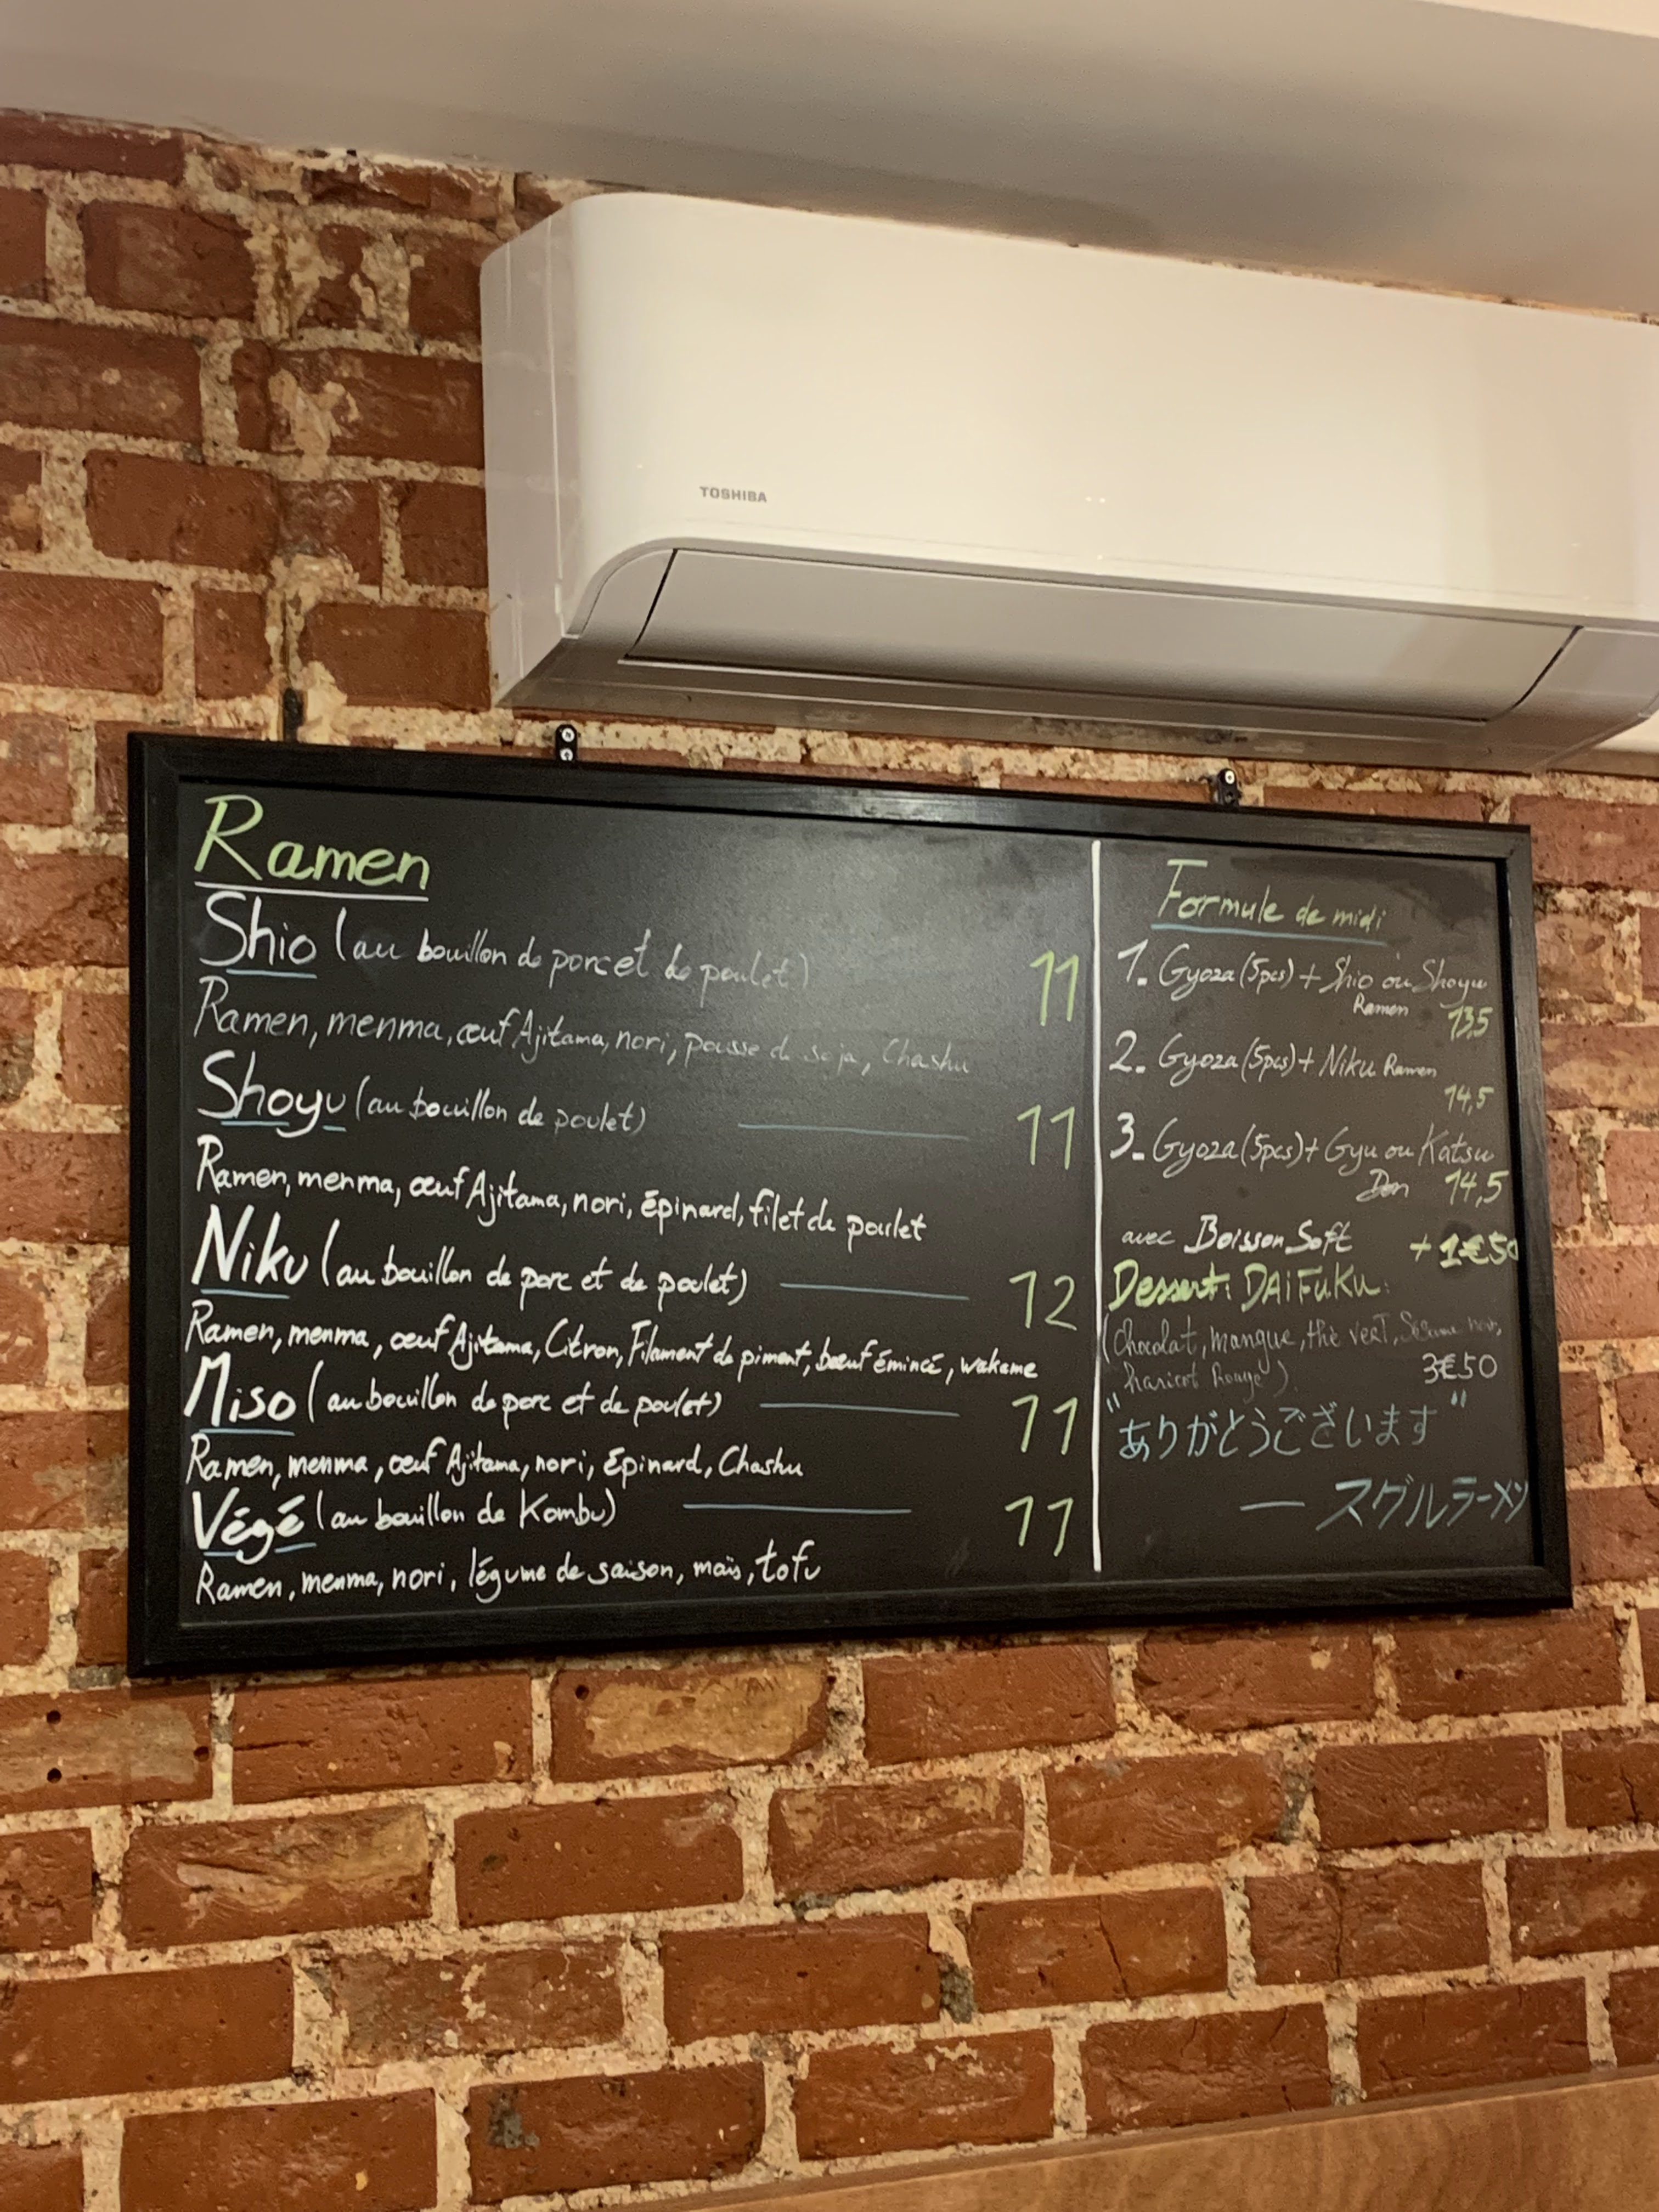 TOSHIBA
Ramen
Shio (au bouillon de porc et de poulet) 11
Ramen, menma, œuf Ajitama, nori, pousse de soja, Chashu
Shoyu (au bouillon de poulet) 11
Ramen, menma, œuf Ajitama, nori, épinard, filet de poulet
Niku (au bouillon de porc et de poulet) 12
Ramen, menma, œuf Ajitama, Citron, Filament de piment, bœuf émincé, wakame
Miso (au bouillon de porc et de poulet) 11
Ramen, menma, œuf Ajitama, nori, épinard, Chashu
Végé (au bouillon de Kombu) 11
Ramen, menma, nori, légume de saison, maïs, tofu
Formule de midi
1. Gyoza (5pcs) + Shio ou Shoyu
Ramen 13,5
2. Gyoza (5pcs) + Niku Ramen
14,5
3. Gyoza (5pcs) + Gyu ou Katsu
Don 14,5
avec Boisson Soft + 1€50
Dessert: DAiFuKu:
(chocolat, mangue, thé vert, Sésame noir,
haricot Rouge). 3€50
"ありがとうございます"
— スグルラーメン